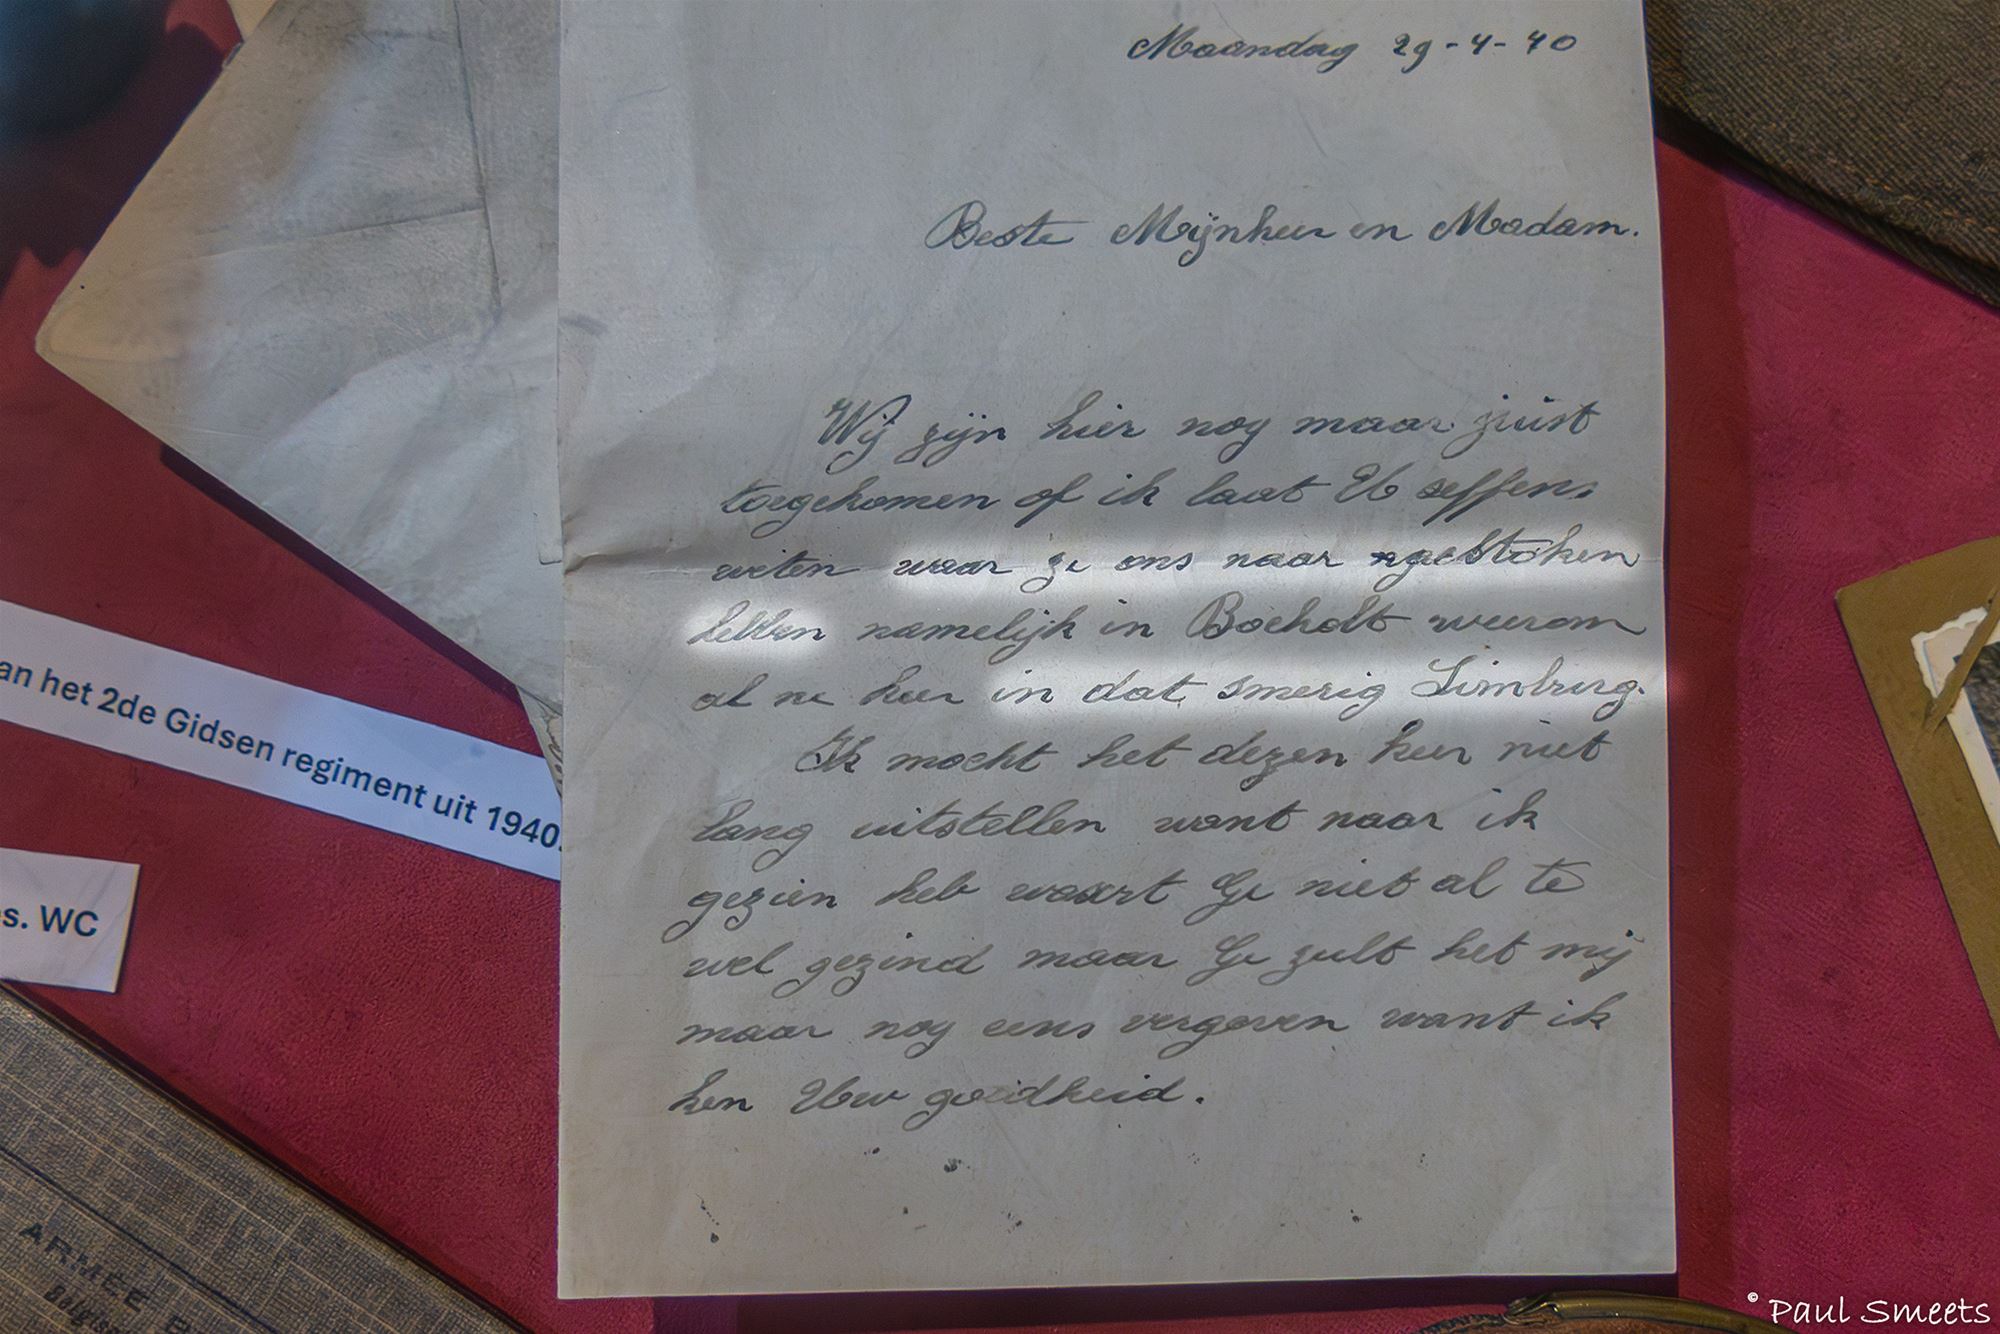 Maandag 29-4-40
Beste Mijnheer en Madam.
Wij zijn hier nog maar juist
toegekomen of ik laat U seffens
weten waar ze ons naar gestoken
hebben namelijk in Bocholt weerom
al ne keer in dat smerig Limburg.
Ik mocht het dezen keer niet
lang uitstellen want naar ik
gezien heb waart Ge niet al te
wel gezind maar Ge zult het mij
maar nog eens vergeven want ik
ken Uw goedheid.
an het 2de Gidsen regiment uit 1940.
s. WC
ARMEE B
Belgisc
© Paul Smeets